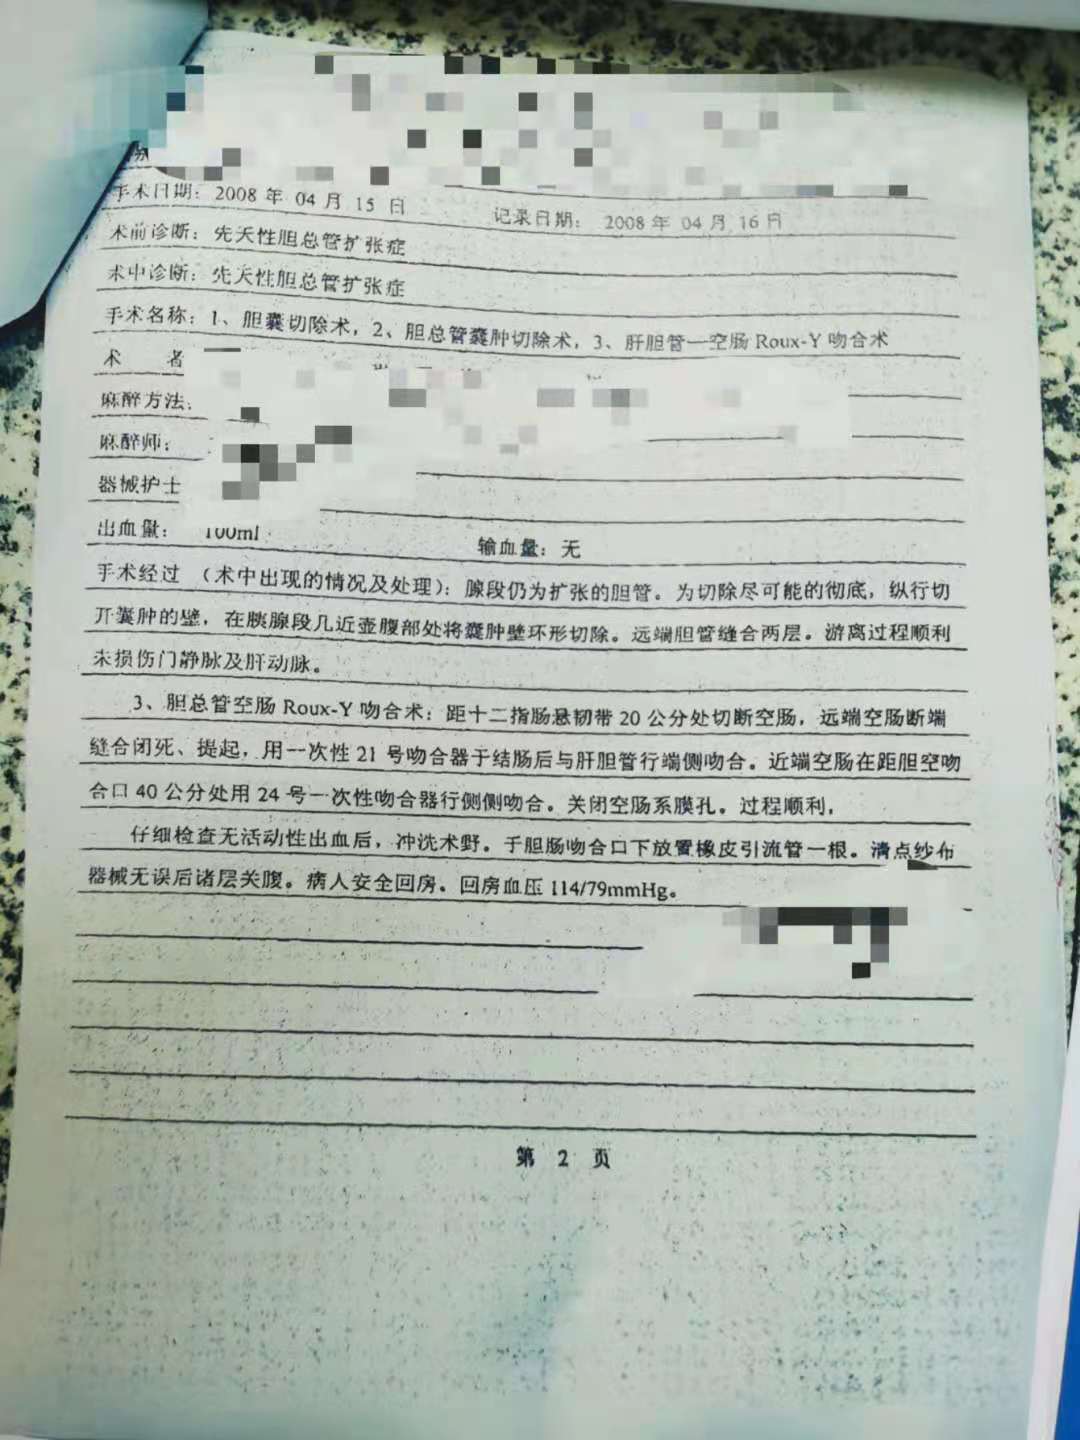 手术日期：2008 年 04 月 15 日 记录日期： 2008 年 04 月 16 日
术前诊断：先天性胆总管扩张症
术中诊断：先天性胆总管扩张症
手术名称：1、胆囊切除术，2、胆总管囊肿切除术，3、肝胆管—空肠 Roux-Y 吻合术
术 者
麻醉方法：
麻醉师：
器械护士
出血量： 100ml 输血量：无
手术经过 （术中出现的情况及处理）：腺段仍为扩张的胆管。为切除尽可能的彻底，纵行切
开囊肿的壁，在胰腺段几近壶腹部处将囊肿壁环形切除。远端胆管缝合两层。游离过程顺利
未损伤门静脉及肝动脉。
3、胆总管空肠 Roux-Y 吻合术：距十二指肠悬韧带 20 公分处切断空肠，远端空肠断端
缝合闭死、提起，用一次性 21 号吻合器于结肠后与肝胆管行端侧吻合。近端空肠在距胆空吻
合口 40 公分处用 24 号一次性吻合器行侧侧吻合。关闭空肠系膜孔。过程顺利，
仔细检查无活动性出血后，冲洗术野。于胆肠吻合口下放置橡皮引流管一根。清点纱布
器械无误后诸层关腹。病人安全回房。回房血压 114/79mmHg。
第 2 页